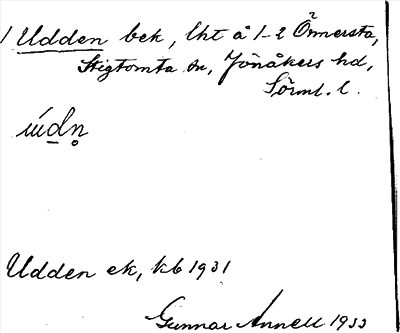 1 Udden bek, lht å 1-2 Önnersta,
Stigtomta sn, Jönåkers hd,
Sörml. l.
Udden ek, kb 1931
Gunnar Annell 1933